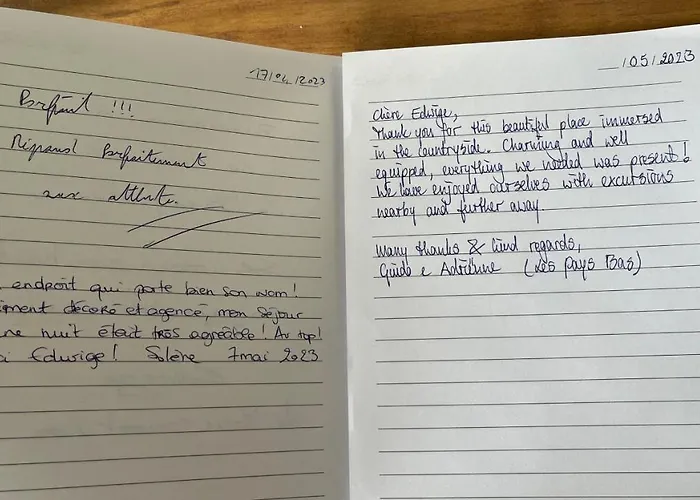 17/04/2023
Parfait !!!
Répond Parfaitement
aux attentes.
endroit qui porte bien son nom !
décoré et agencé, mon séjour
ne nuit était très agréable ! Au top !
Edwige ! Solène 7 mai 2023
/05/2023
Chère Edwige,
Thank you for this beautiful place immersed
in the countryside. Charming and well
equipped, everything we needed was present!
We have enjoyed ourselves with excursions
nearby and further away
Many thanks & kind regards,
Guido e (Les Pays Bas)